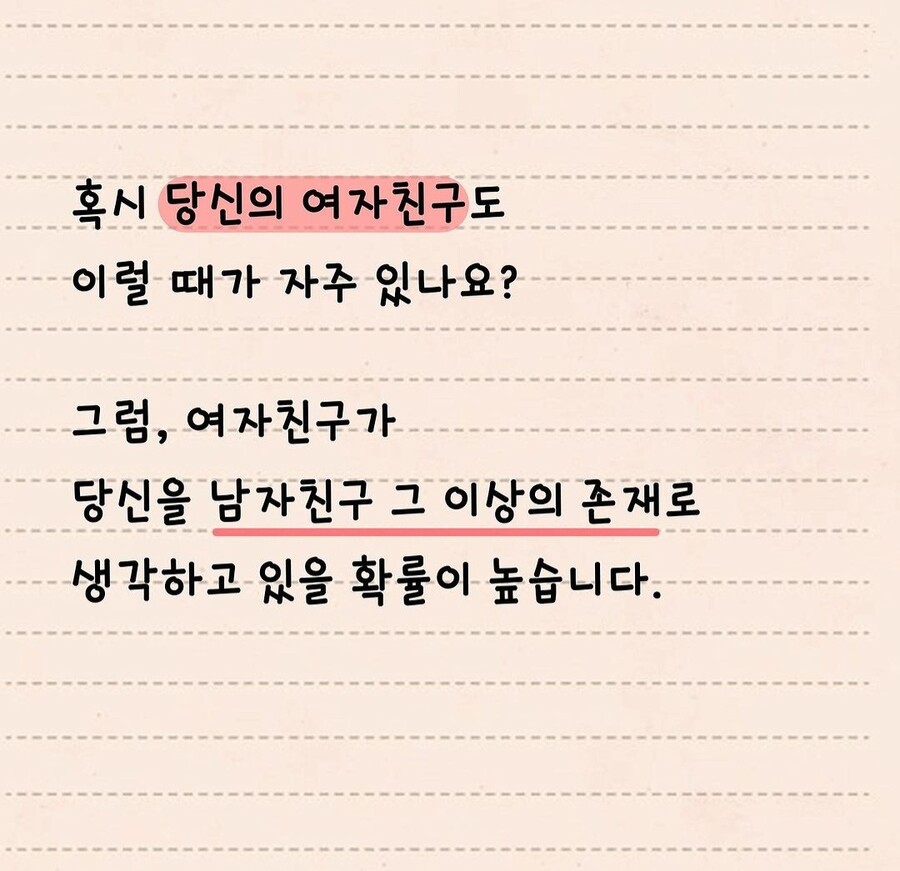 혹시 당신의 여자친구도
이럴 때가 자주 있나요?
그럼, 여자친구가
당신을 남자친구 그 이상의 존재로
생각하고 있을 확률이 높습니다.